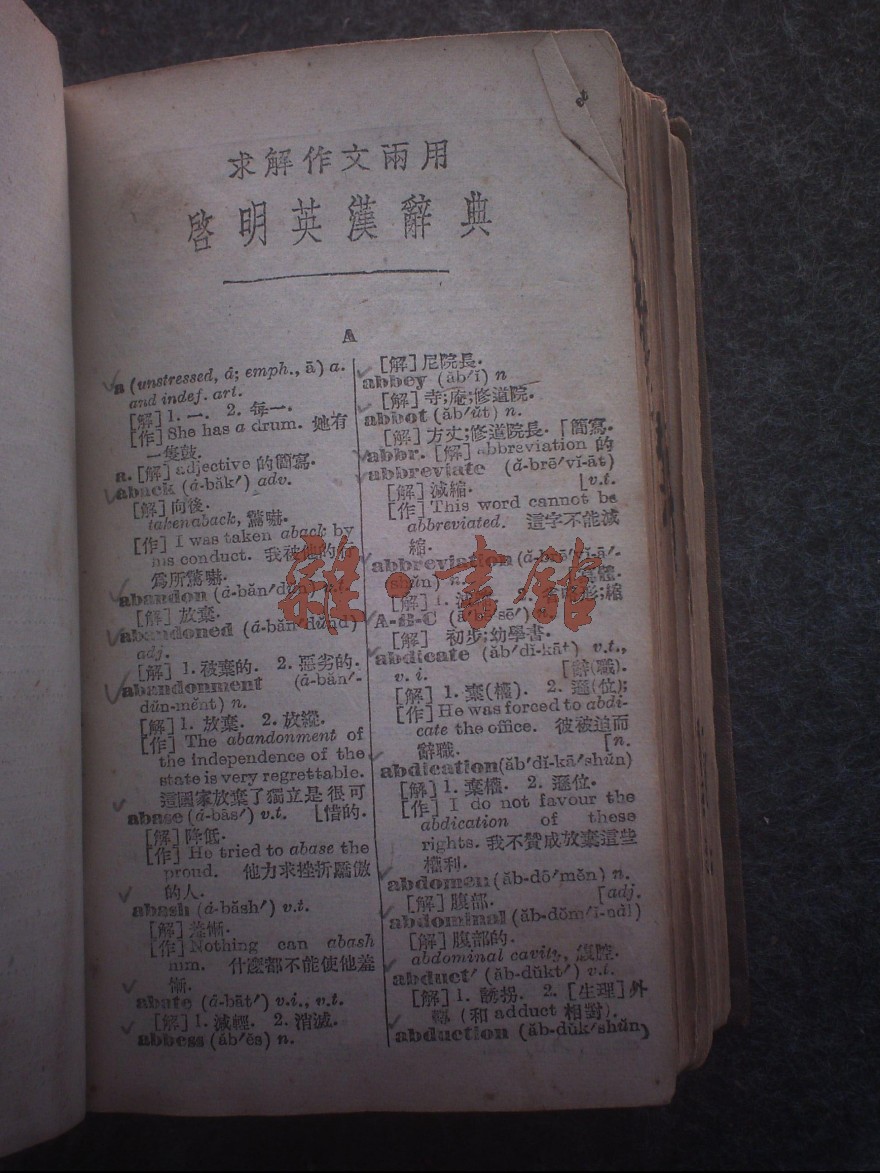 求解作文兩用
啓明英漢辭典
A
a (unstressed, á; emph., ā) a.
and indef. art.
[解] 1. 一. 2. 每一.
[作] She has a drum. 她有
一隻鼓.
a. [解] adjective 的簡寫.
aback (á-băk′) adv.
[解] 向後.
taken aback, 驚嚇.
[作] I was taken aback by
his conduct. 我被他的行
爲所驚嚇.
abandon (á-băn′dŭn) v.t.
[解] 放棄.
abandoned (á-băn′dŭnd)
adj.
[解] 1. 被棄的. 2. 惡劣的.
abandonment (á-băn′-
dŭn-mĕnt) n.
[解] 1. 放棄. 2. 放縱.
[作] The abandonment of
the independence of the
state is very regrettable.
這國家放棄了獨立是很可
abase (á-bās′) v.t. [惜的.
[解] 降低.
[作] He tried to abase the
proud. 他力求挫折驕傲
的人.
abash (á-băsh′) v.t.
[解] 羞慚.
[作] Nothing can abash
him. 什麼都不能使他羞
慚.
abate (á-bāt′) v.i., v.t.
[解] 1. 減輕. 2. 消滅.
abbess (ăb′ĕs) n.
[解] 尼院長.
abbey (ăb′ĭ) n
[解] 寺;庵;修道院.
abbot (ăb′ŭt) n.
[解] 方丈;修道院長. 「簡寫.
abbr. [解] abbreviation 的
abbreviate (ă-brē′vĭ-āt)
[解] 減縮. [v.t.
[作] This word cannot be
abbreviated. 這字不能減
縮.
abbreviation (ă-brē′vĭ-ā′-
shŭn) n.
[解] 1.
A-B-C (ā′bē′sē′) n.
[解] 初步;幼學書.
abdicate (ăb′dĭ-kāt) v.t.,
v. i. [辭(職).
[解] 1. 棄(權). 2. 遜(位);
[作] He was forced to abdi-
cate the office. 彼被迫而
辭職. [n.
abdication (ăb′dĭ-kā′shŭn)
[解] 1. 棄權. 2. 遜位.
[作] I do not favour the
abdication of these
rights. 我不贊成放棄這些
權利.
abdomen (ăb-dō′mĕn) n.
[解] 腹部. [adj.
abdominal (ăb-dŏm′ĭ-năl)
[解] 腹部的.
abdominal cavity, 腹腔.
abduct′ (ăb-dŭkt′) v.t.
[解] 1. 誘拐. 2. [生理] 外
轉 (和 adduct 相對).
abduction (ăb-dŭk′shŭn)
雜·書館